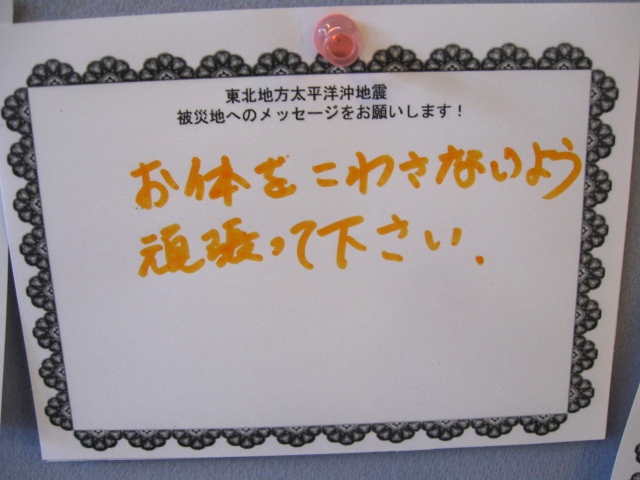 東北地方太平洋沖地震
被災地へのメッセージをお願いします！
お体をこわさないよう
頑張って下さい.